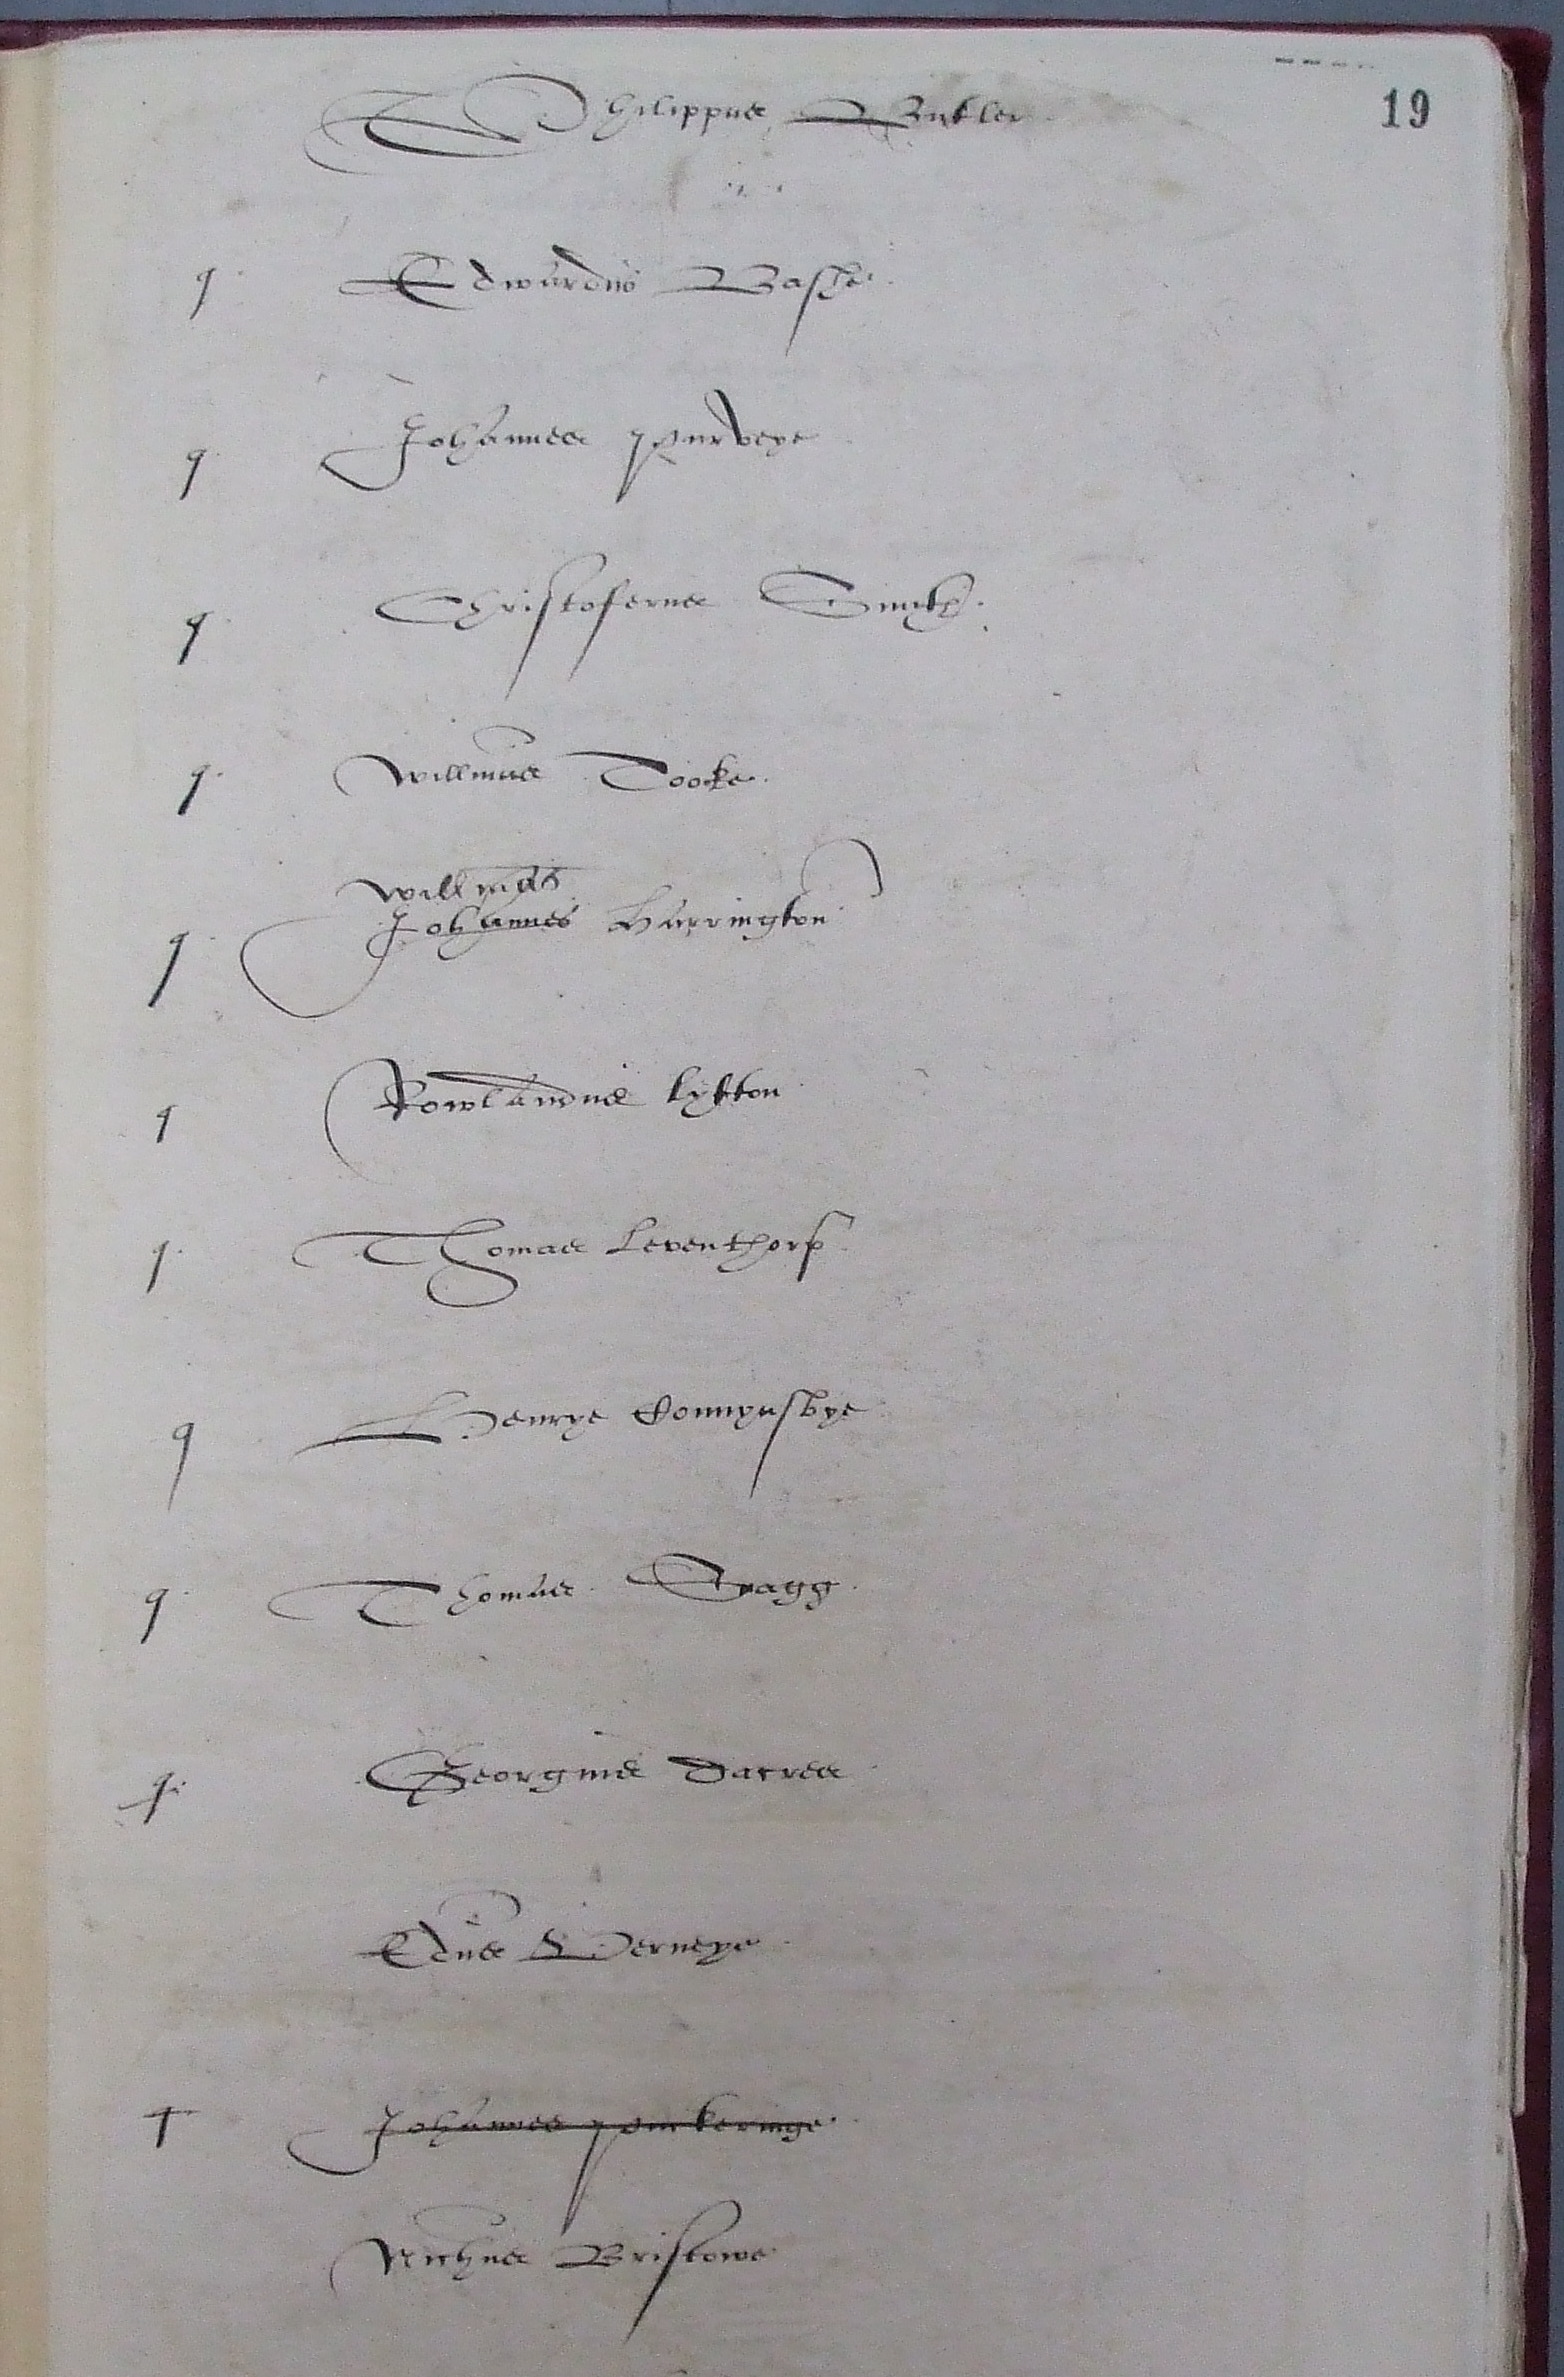 19
Philippus Butler
q Edwardus Bashe
q Johannes Purveye
q Christoferus Smyth
q Willmus Tooke
Willmus
q Johannes Harrington
q Rowlandus Lytton
q Thomas Leventhorp
q Henrye Connyusbye
q Thomas Dacres
q Georgius Dacres
Edus Verneye
Johannes Pouikeringe
Nichus Bristowe